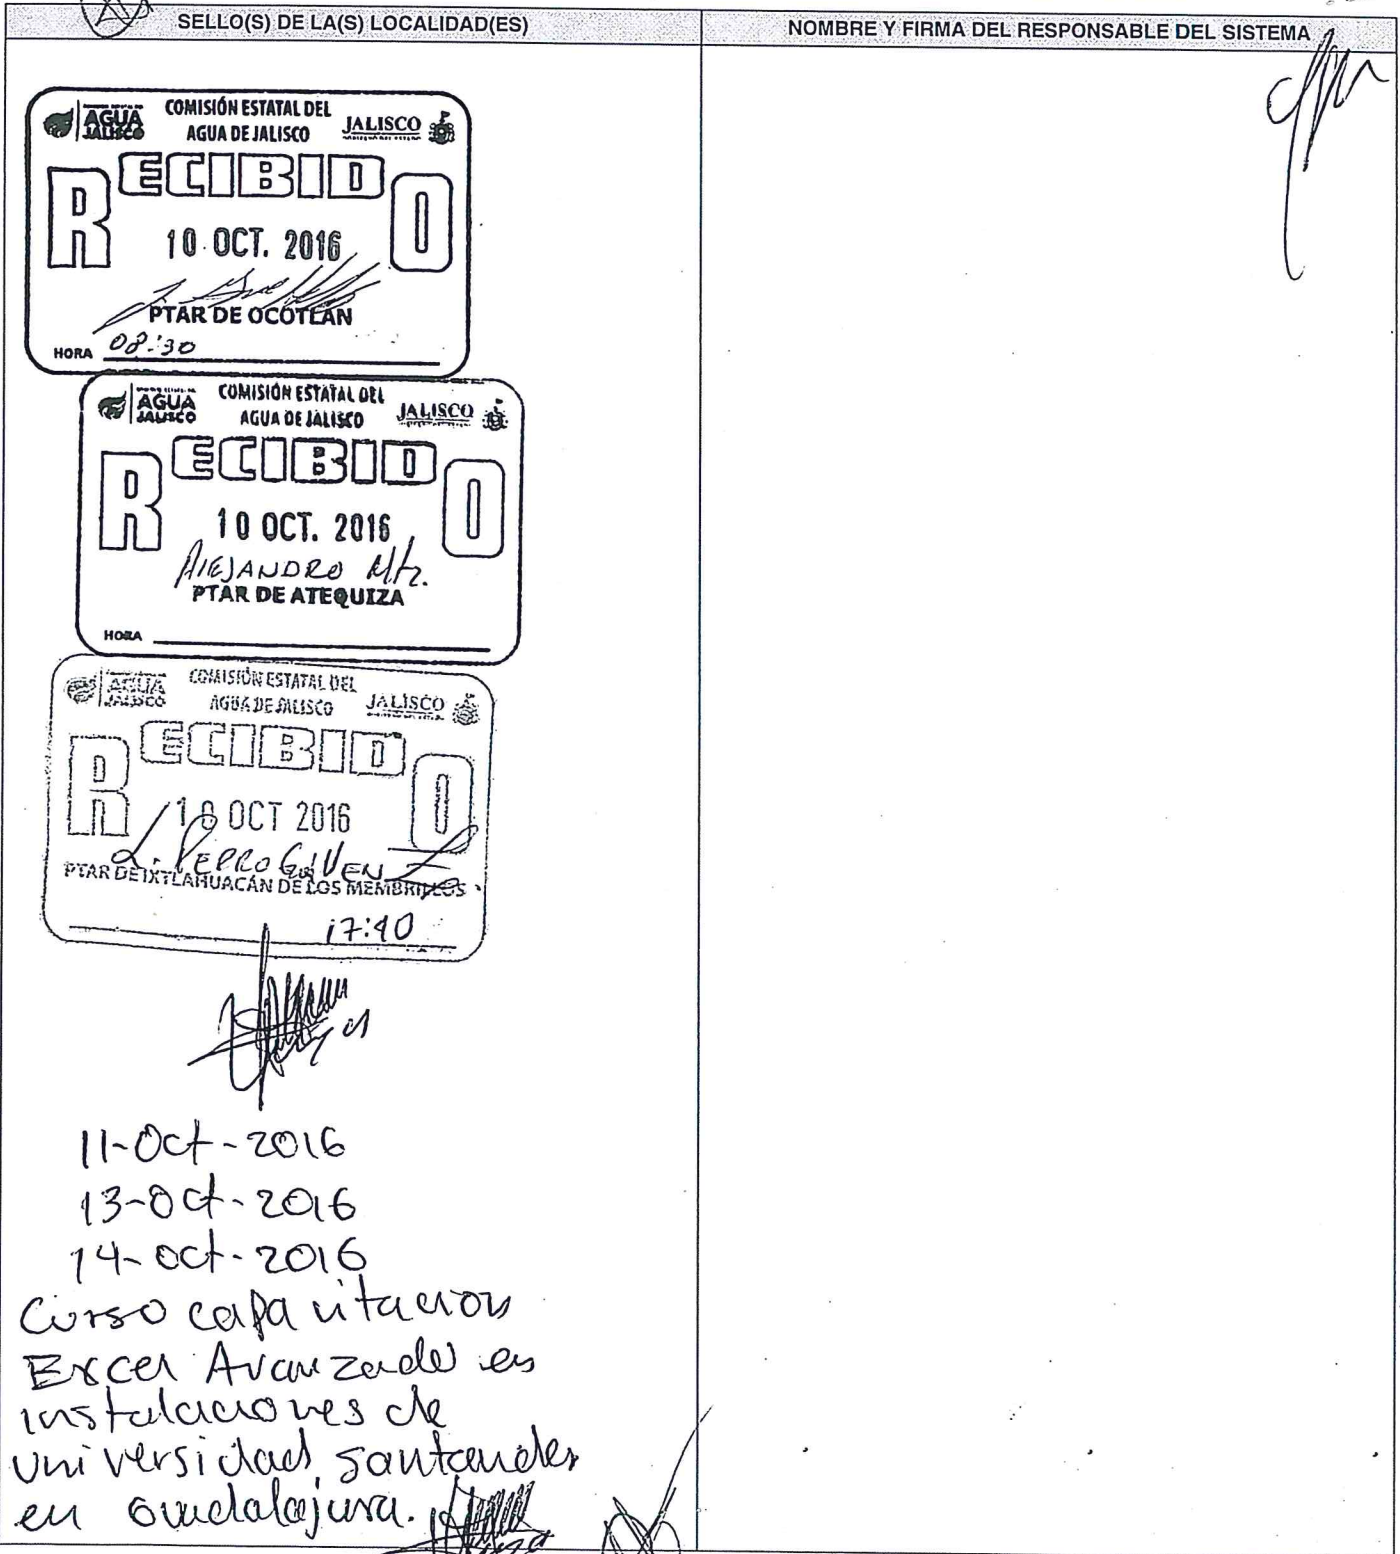 SELLO(S) DE LA(S) LOCALIDAD(ES)
NOMBRE Y FIRMA DEL RESPONSABLE DEL SISTEMA
AGUA
JALISCO
COMISIÓN ESTATAL DEL
AGUA DE JALISCO
JALISCO
RECIBIDO
10 OCT. 2016
PTAR DE OCOTLÁN
HORA 08:30
AGUA
JALISCO
COMISIÓN ESTATAL DEL
AGUA DE JALISCO
JALISCO
RECIBIDO
10 OCT. 2016
AlEJANDRO Mtz.
PTAR DE ATEQUIZA
HORA
AGUA
JALISCO
COMISIÓN ESTATAL DEL
AGUA DE JALISCO
JALISCO
RECIBIDO
10 OCT 2016
PTAR DE IXTLAHUACÁN DE LOS MEMBRILLOS
17:40
11-Oct-2016
13-Oct-2016
14-oct-2016
Curso capacitacion
Excel Avanzado en
instalaciones de
universidad santander
en Guadalajara.